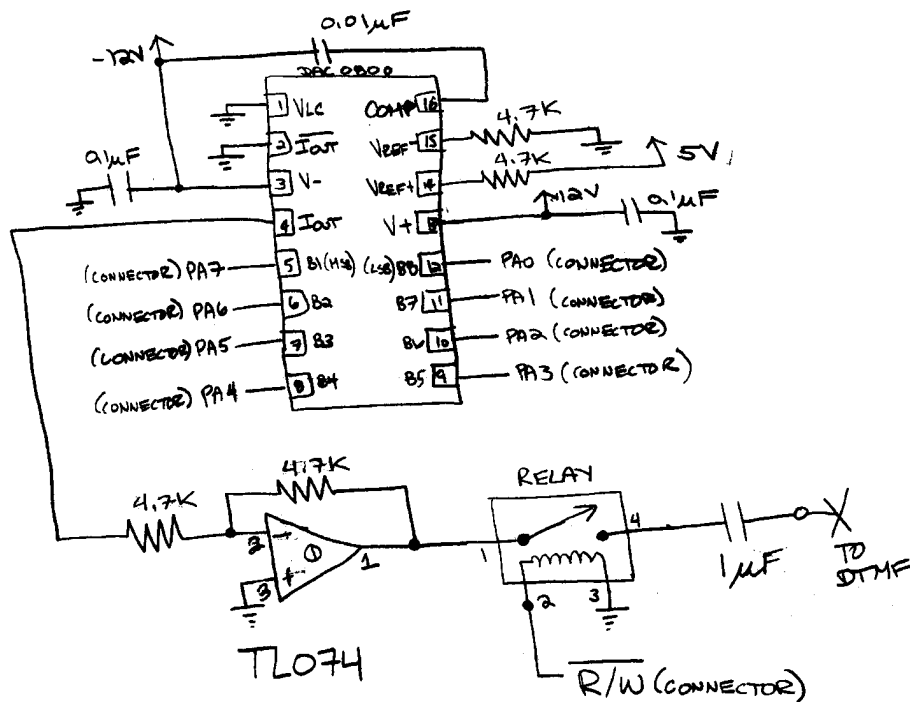 0.01µF
-12V
DAC0800
1 VLC
COMP 16
4.7K
2 IOUT
VREF- 15
4.7K
5V
0.1µF
3 V-
VREF+ 14
+12V
0.1µF
4 IOUT
V+ 13
(CONNECTOR) PA7
5 B1(MSB)
(LSB)B8 12
PA0 (CONNECTOR)
(CONNECTOR) PA6
6 B2
B7 11
PA1 (CONNECTOR)
(CONNECTOR) PA5
7 B3
B6 10
PA2 (CONNECTOR)
(CONNECTOR) PA4
8 B4
B5 9
PA3 (CONNECTOR)
4.7K
RELAY
4.7K
4
2 -
1
1
1
3 +
1µF
TO
DTMF
2
3
TL074
R/W (CONNECTOR)